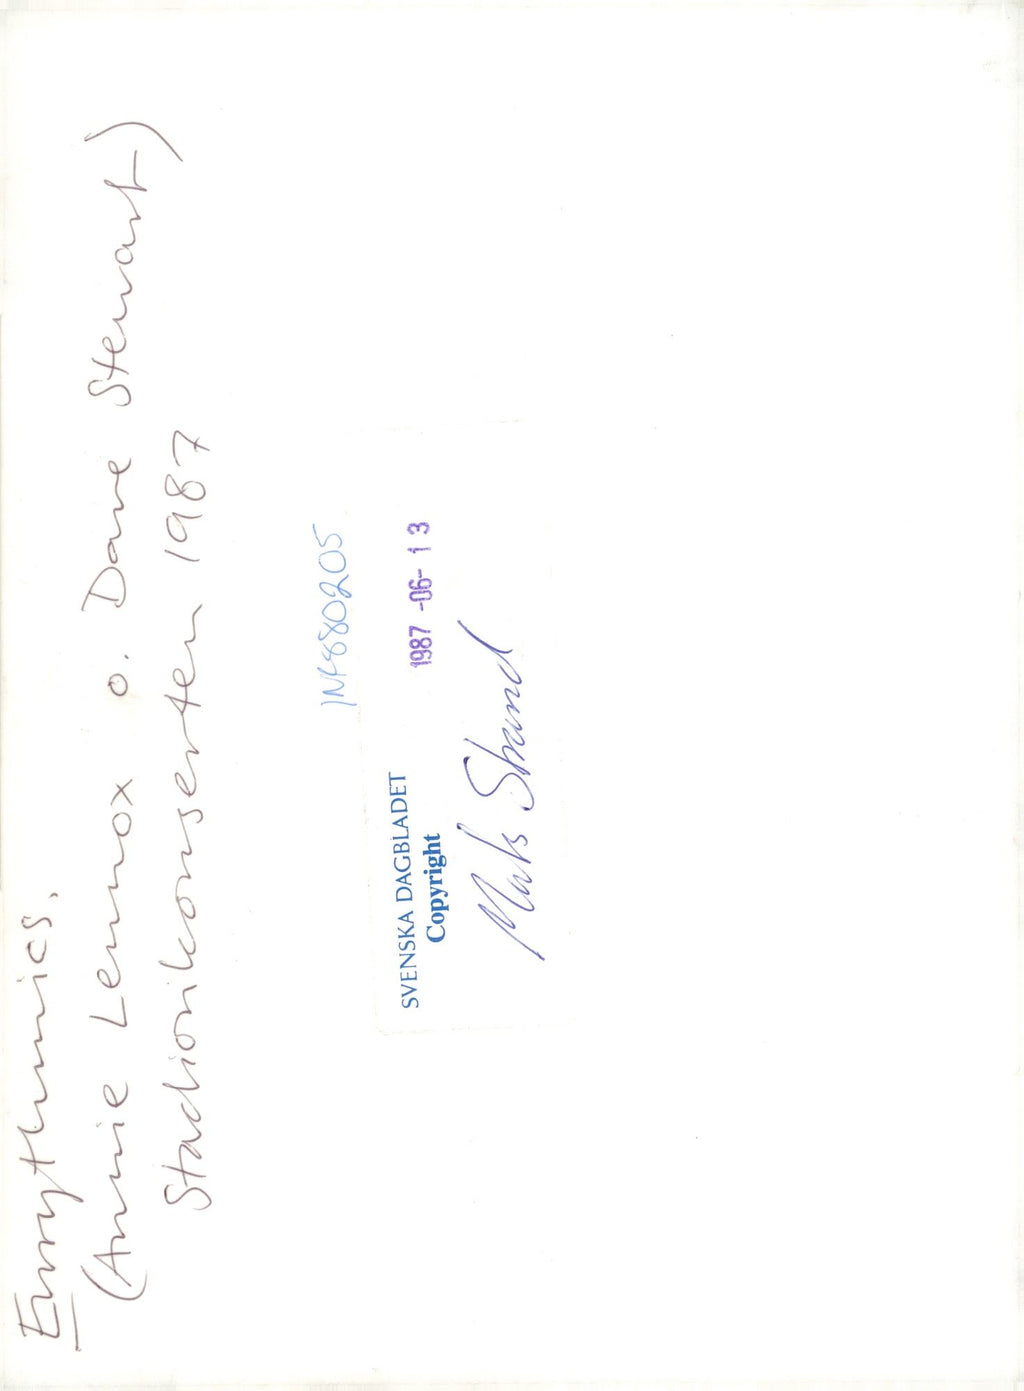 Eurythmics.
(Annie Lennox o. Dave Stewart)
Stadionkonserten 1987
INK880205
SVENSKA DAGBLADET
Copyright
1987 -06- 13
Mats Strand